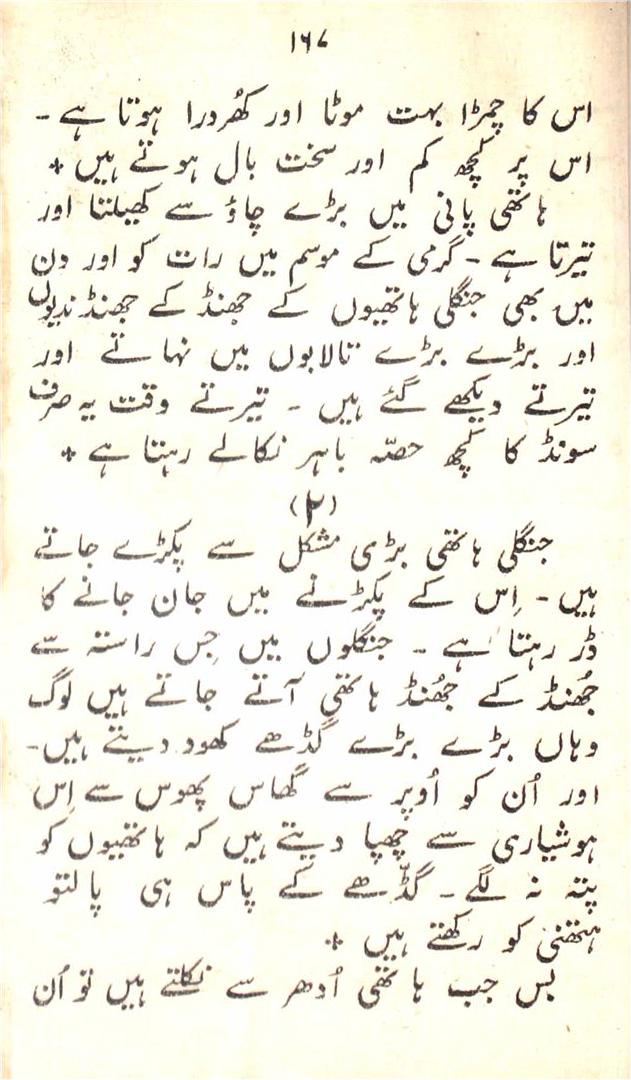 ۱۶۷
اس کا چمڑا بہت موٹا اور کھُردرا ہوتا ہے -
اس پر کچھ کم اور سخت بال ہوتے ہیں +
ہاتھی پانی میں بڑے چاؤ سے کھیلتا اور
تیرتا ہے - گرمی کے موسم میں رات کو اور دن
میں بھی جنگلی ہاتھیوں کے جھنڈ کے جھنڈ ندیوں
اور بڑے بڑے تالابوں میں نہاتے اور
تیرتے دیکھے گئے ہیں - تیرتے وقت یہ صرف
سونڈ کا کچھ حصّہ باہر نکالے رہتا ہے +
(۲)
جنگلی ہاتھی بڑی مشکل سے پکڑے جاتے
ہیں - اِس کے پکڑنے میں جان جانے کا
ڈر رہتا ہے - جنگلوں میں جِس راستہ سے
جھُنڈ کے جھُنڈ ہاتھی آتے جاتے ہیں لوگ
وہاں بڑے بڑے گڈھے کھود دیتے ہیں -
اور اُن کو اُوپر سے گھاس پھوس سے اِس
ہوشیاری سے چھپا دیتے ہیں کہ ہاتھیوں کو
پتہ نہ لگے - گڈّھے کے پاس ہی پالتو
ہتھنی کو رکھتے ہیں +
بس جب ہاتھی اُدھر سے نکلتے ہیں تو اُن